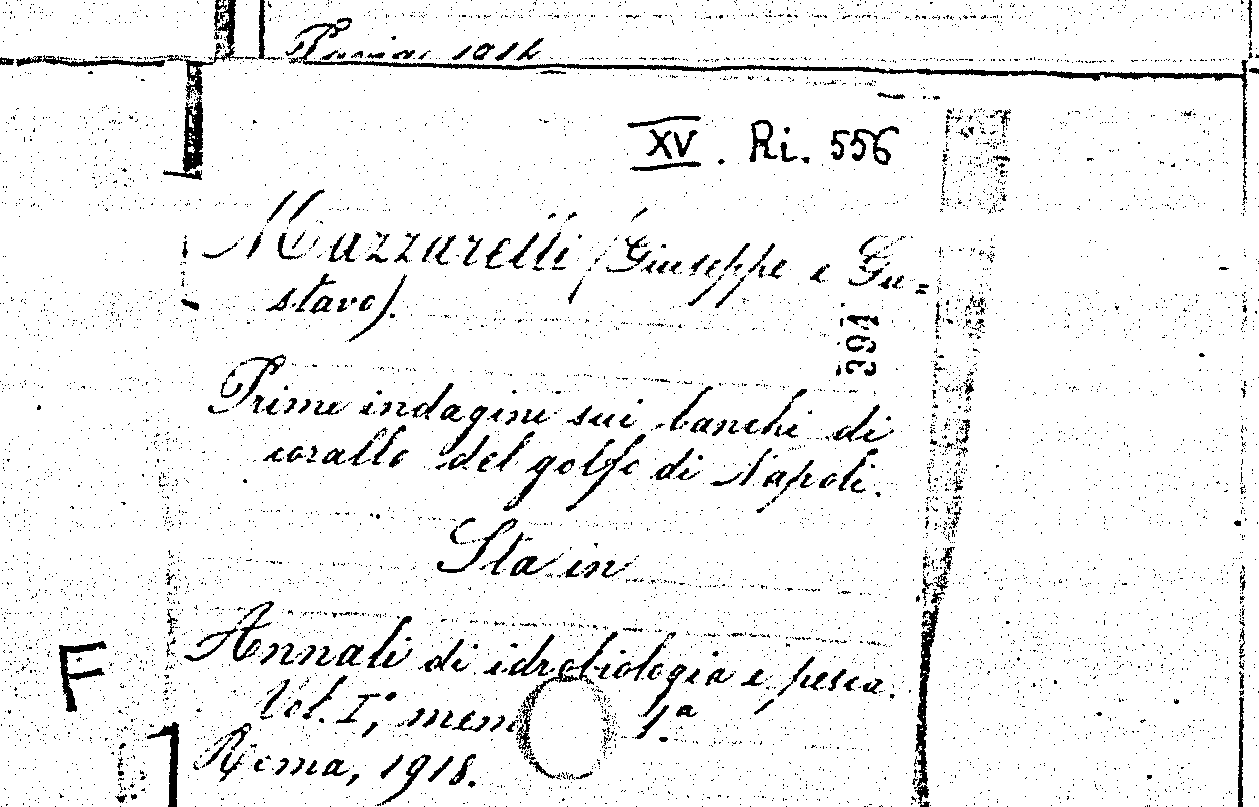 1914
XV. Ri. 556
Mazzarelli (Giuseppe e Gu=
stavo).
394
Prime indagini sui banchi di
corallo del golfo di Napoli.
Sta in
Annali di idrobiologia e pesca.
F
Vol. I°; mem 1ª
Roma, 1918.